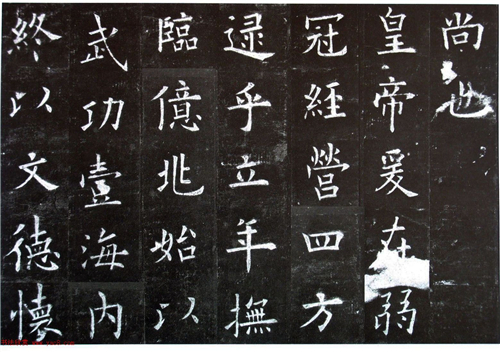 尚也
皇帝爰在弱
冠經營四方
逮乎立年撫
臨億兆始以
武功壹海內
終以文德懷